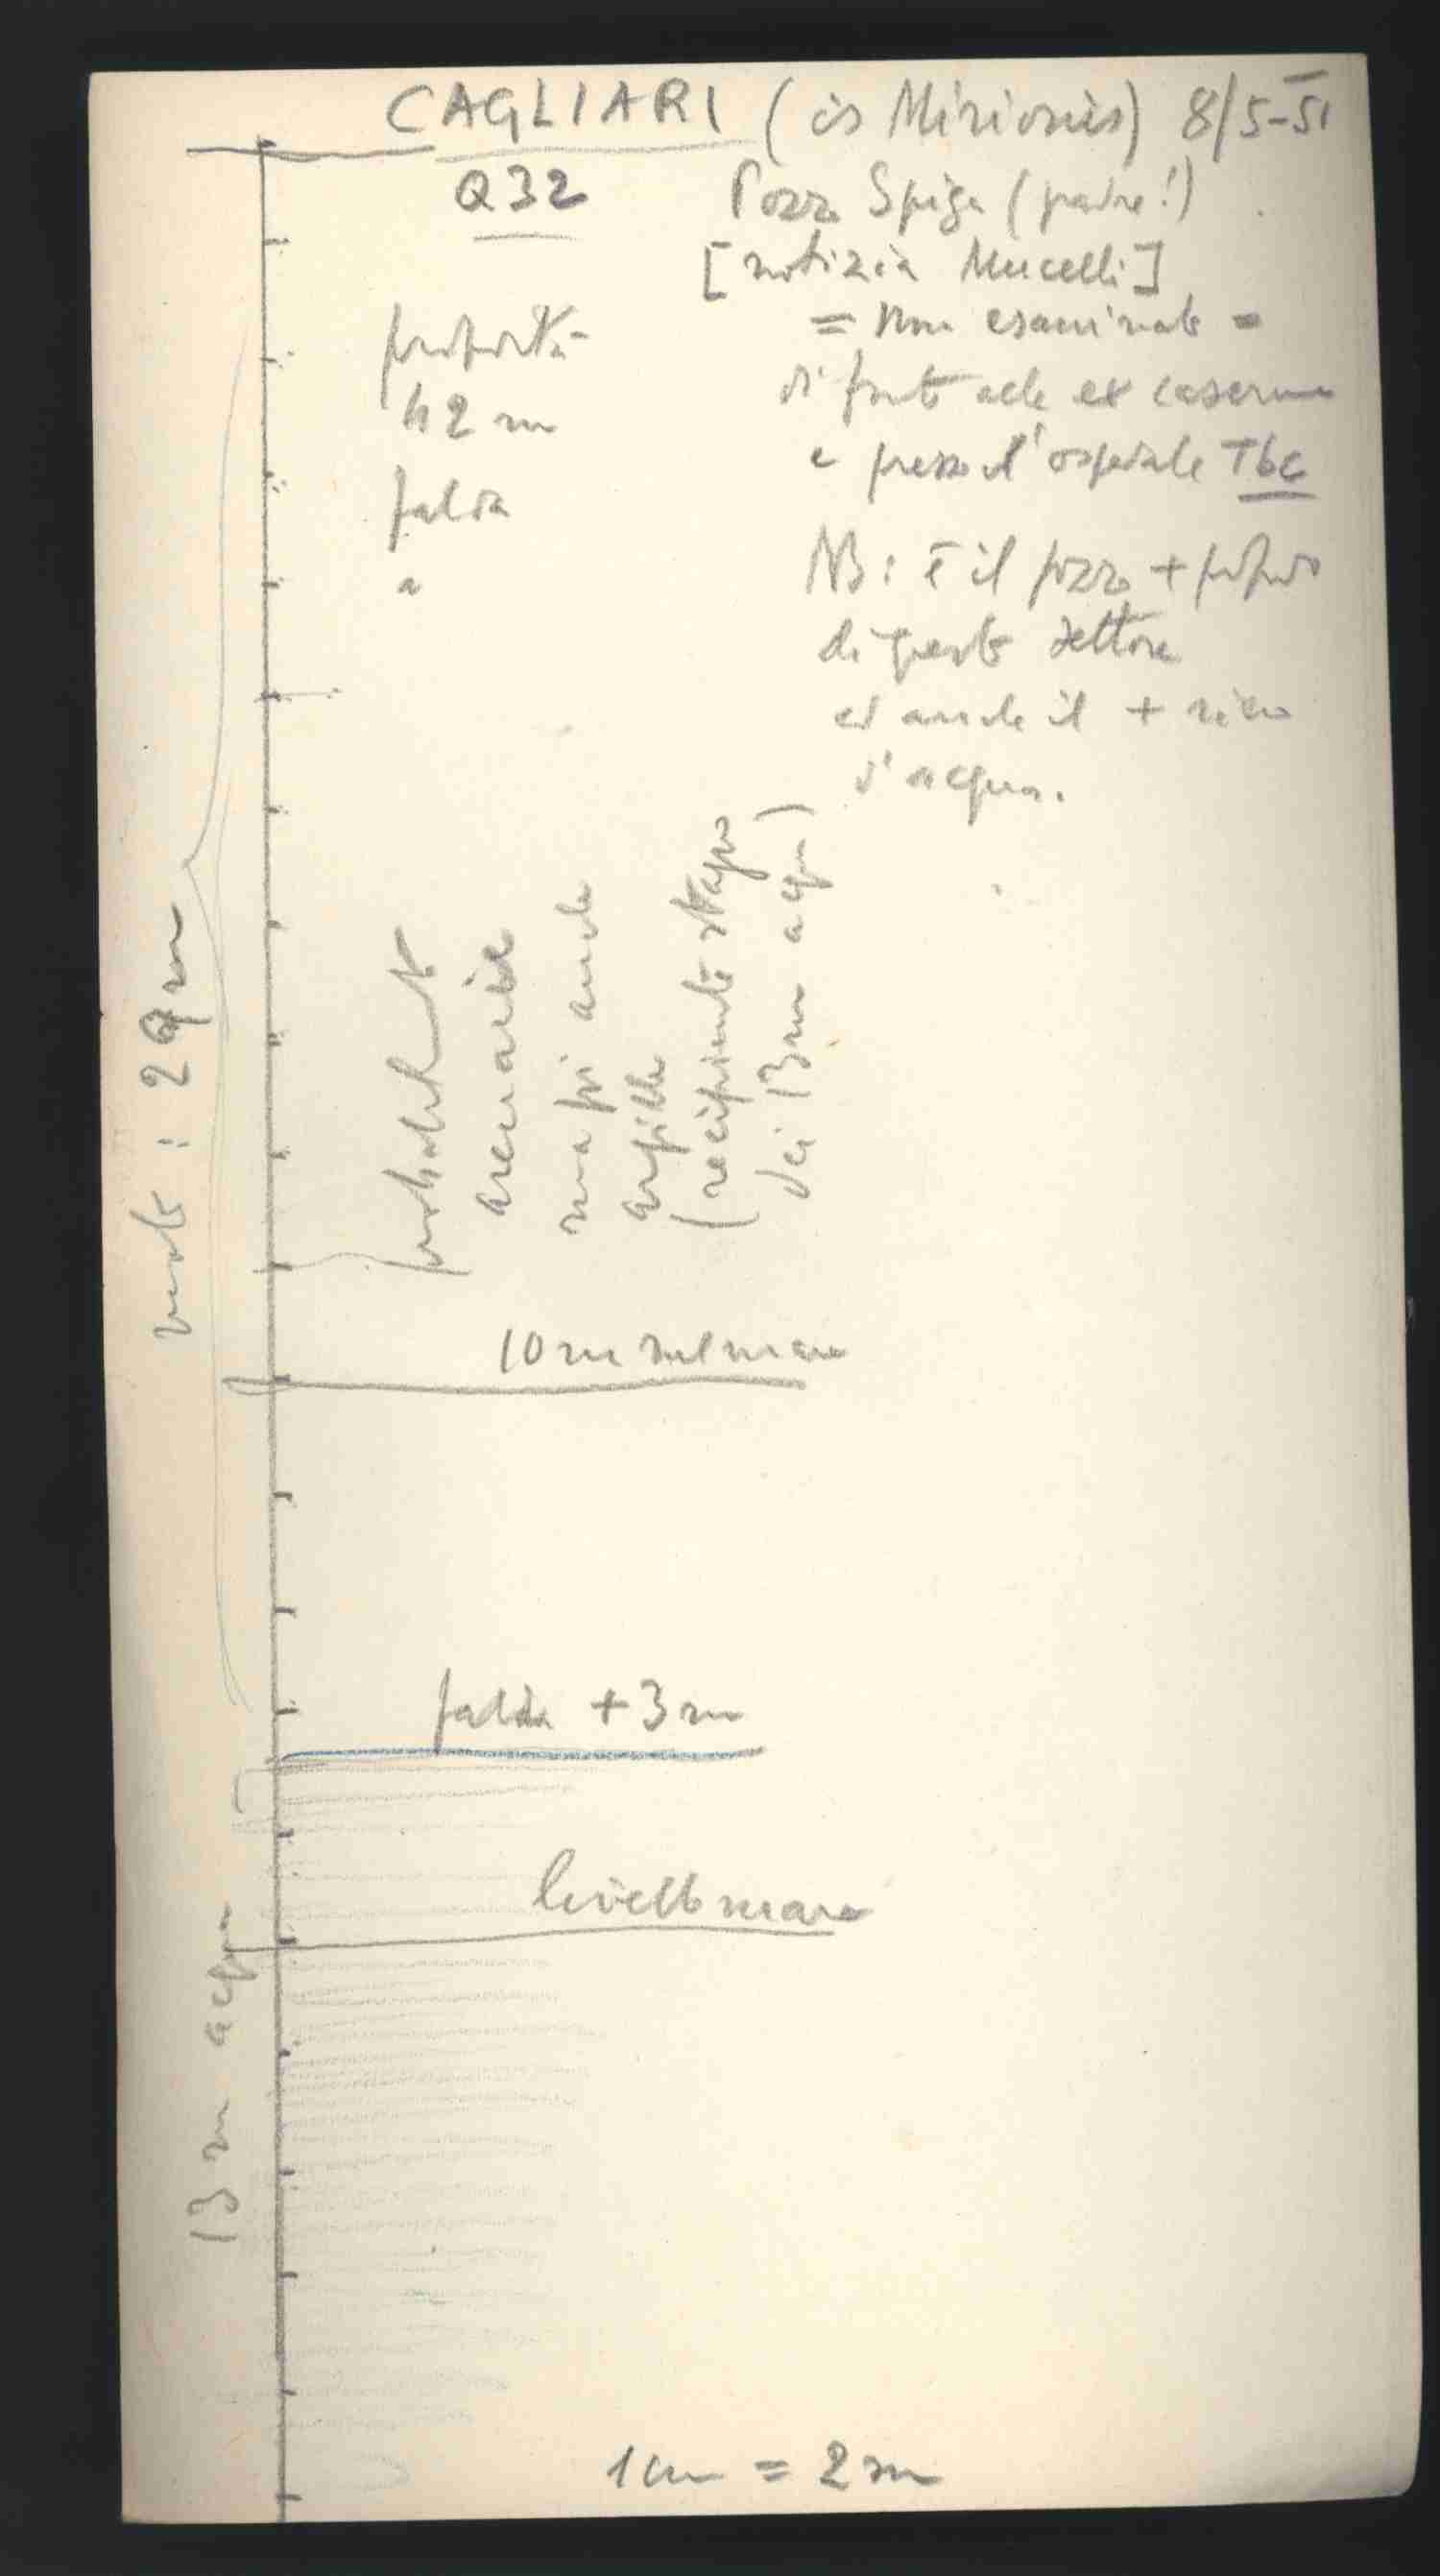 CAGLIARI (is Mirionis) 8/5-51
Q32
Pozzo Spiga (padre!)
[notizia Mucelli]
= Non esaminato =
di fronte alle ex caserme
e presso l'ospedale Tbc
NB: è il pozzo + profondo
di questo settore
ed anche il + ricco
d'acqua.
profondità
42 m
falda
a
vuoto : 29 m
probabilmente
arenarie
ma poi anche
argille
(recipiente stagno
dei 13 m acqua)
10 m sul mare
falda +3 m
livello mare
13 m acqua
1 cm = 2 m